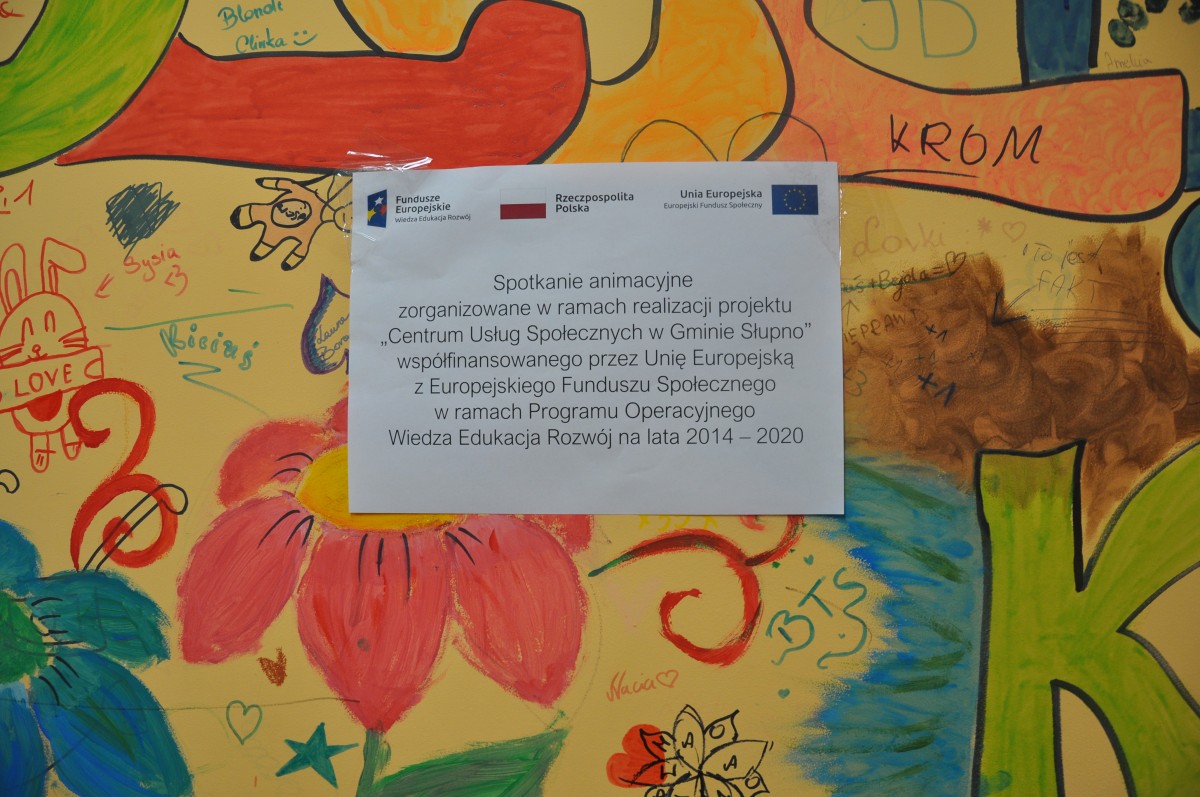 Blondi
Clinka
JD
Amelcia
KROM
Sysia
<3
Kiciuś
LOVE
Laura
Lovki
To jest
FAKT
+1
+1
+1
Fundusze
Europejskie
Wiedza Edukacja Rozwój
Rzeczpospolita
Polska
Unia Europejska
Europejski Fundusz Społeczny
Spotkanie animacyjne
zorganizowane w ramach realizacji projektu
„Centrum Usług Społecznych w Gminie Słupno”
współfinansowanego przez Unię Europejską
z Europejskiego Funduszu Społecznego
w ramach Programu Operacyjnego
Wiedza Edukacja Rozwój na lata 2014 – 2020
BTS
Nacia
K